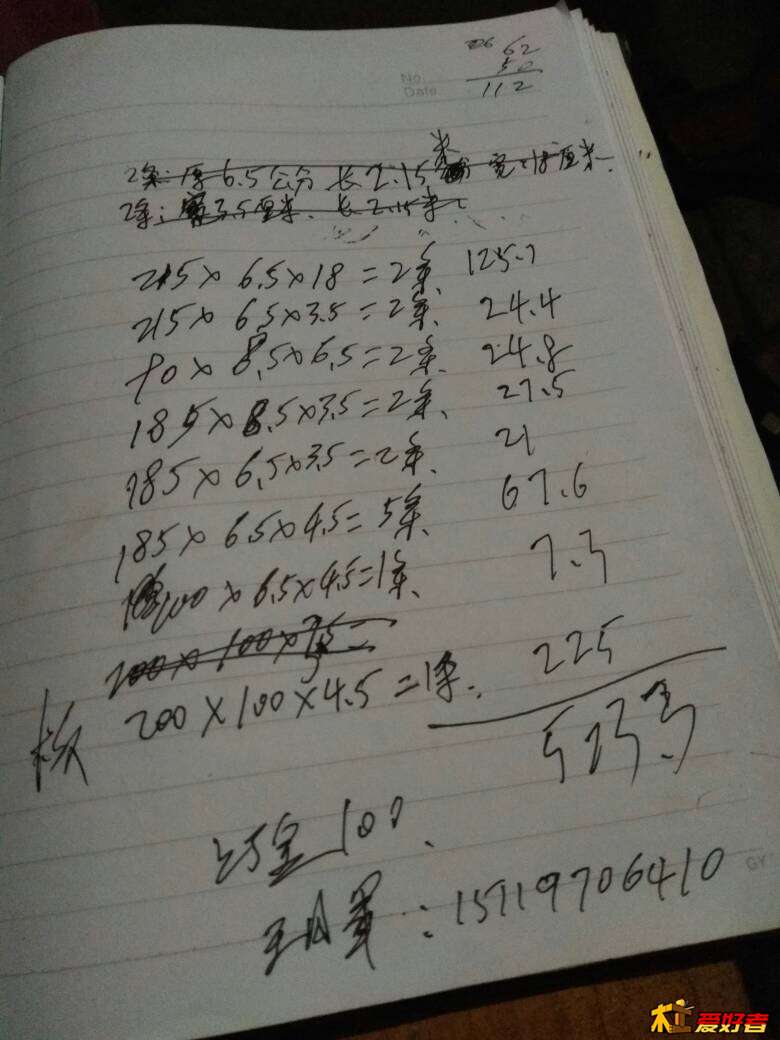 62
50
112
No.
Date
2条: 厚6.5公分 长2.15米 宽:18厘米
2条: 3.5厘米. 长2.15米
215×6.5×18=2条 125.7
215×6.5×3.5=2条 24.4
90×8.5×6.5=2条 24.8
185×8.5×3.5=2条 27.5
185×6.5×3.5=2条 21
185×6.5×4.5=5条 67.6
200×6.5×4.5=1条 7.3
200×100×
板 200×100×4.5=1条. 225
523.3
订金100.
王 : 15719706410
GY
杠爱好者